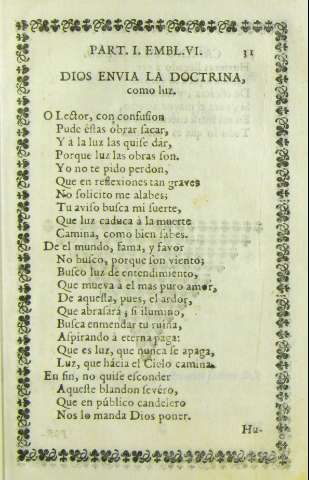 PART. I. EMBL. VI. 31
DIOS ENVIA LA DOCTRINA,
como luz.
O Lector, con confusion
Pude éſtas obrar ſacar,
Y à la luz las quiſe dàr,
Porque luz las obras ſon.
Yo no te pido perdon,
Que en reflexiones tan graves
No ſolicito me alabes;
Tu aviſo buſca mi ſuerte,
Que luz caduca à la muerte
Camina, como bien ſabes.
De el mundo, fama, y favor
No buſco, porque ſon viento;
Buſco luz de entendimiento,
Que mueva à el mas puro amor,
De aqueſta, pues, el ardor,
Que abraſarà, ſi ilumino,
Buſca enmendar tu ruina,
Aſpirando à eterna paga:
Que es luz, que nunca ſe apaga,
Luz, que hàcia el Cielo camina.
En fin, no quiſe eſconder
Aqueſte blandon ſevéro,
Que en pùblico candelero
Nos lo manda Dios poner.
Hu-